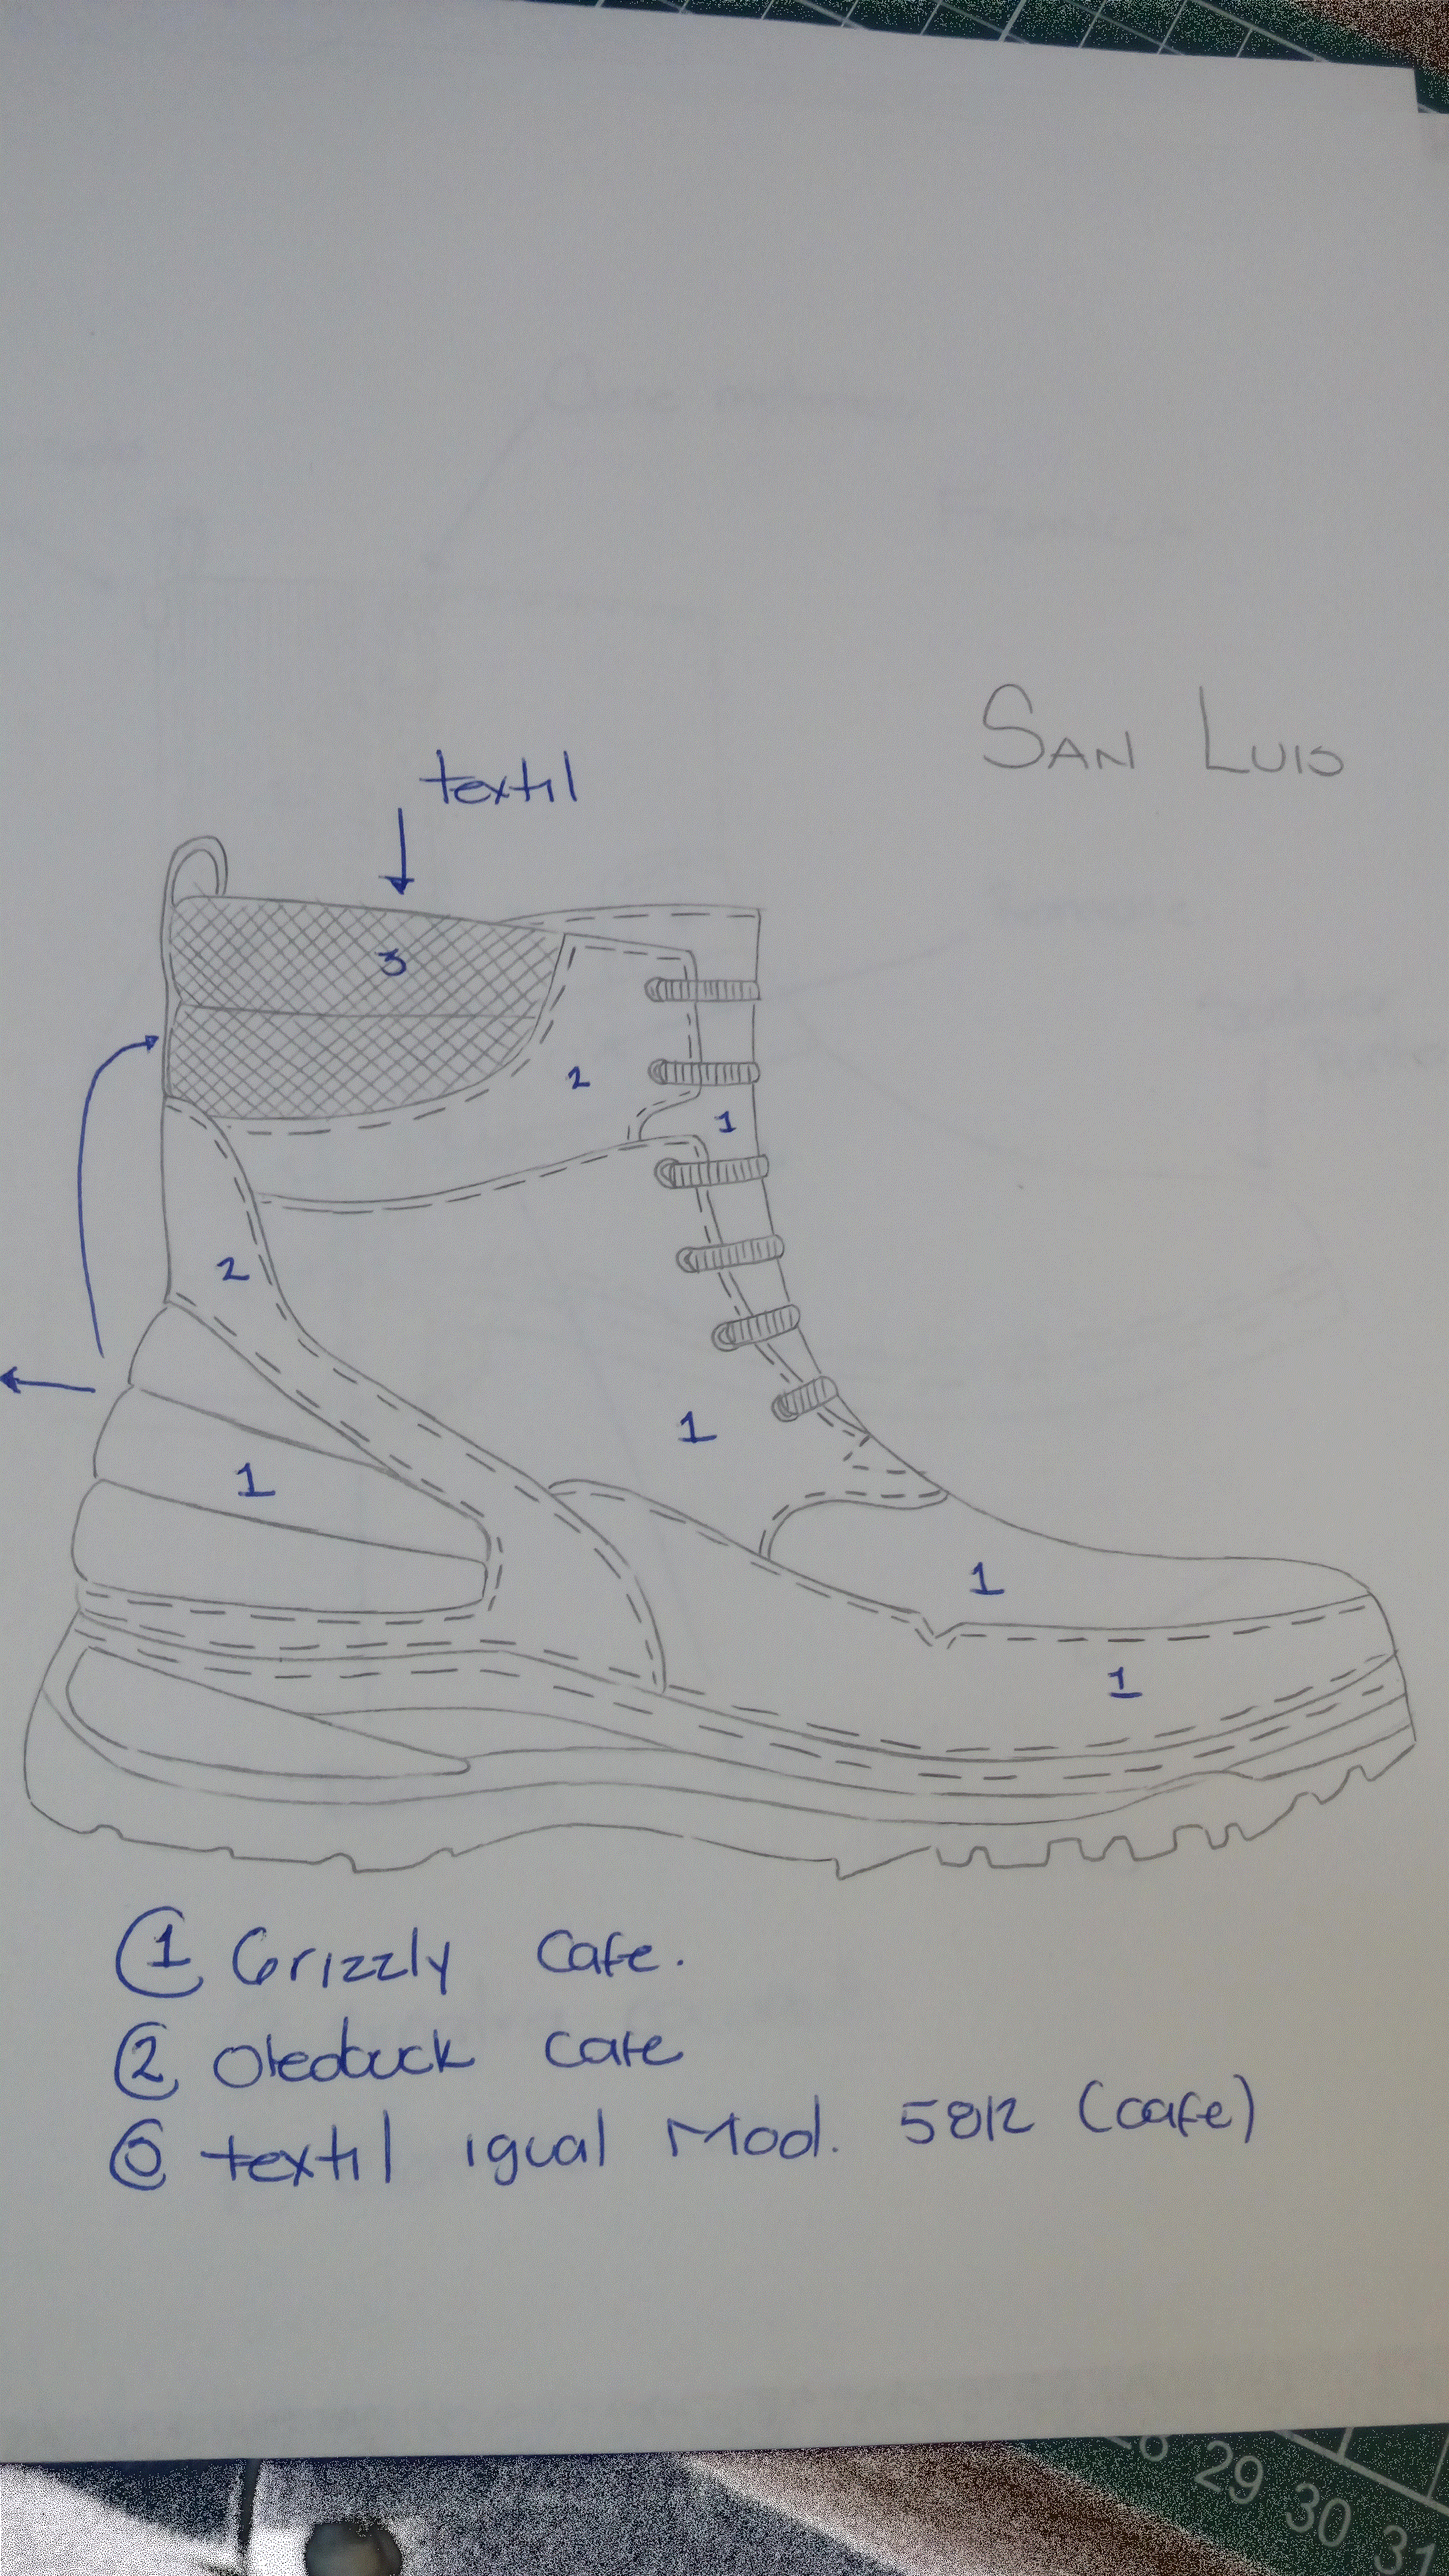 SAN LUIS
textil
3
2
1
2
1
1
1
1
1 Grizzly Cafe.
2 Oleobuck cafe
3 textil igual Mod. 5812 (cafe)
28 29 30 31